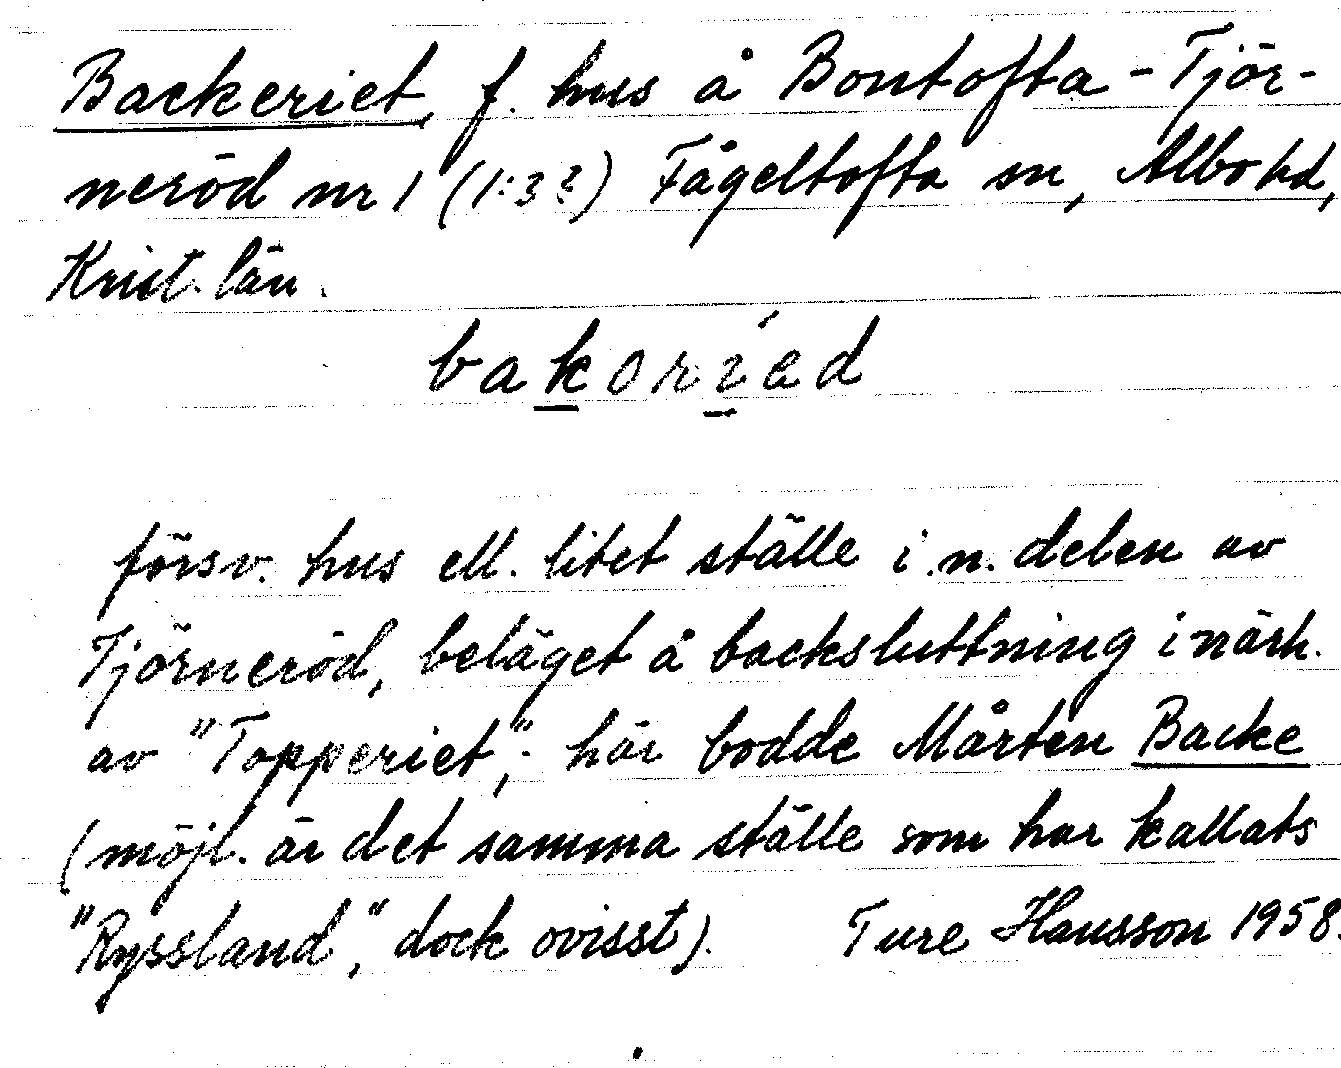 Backeriet, f. hus å Bontofta-Tjör-
neröd nr 1 (1:3?) Fågeltofta sn, Albo hd,
Krist. län.
bakoríad
försv. hus ell. litet ställe i n. delen av
Tjörneröd, beläget å backsluttning i närh.
av "Topperiet"; här bodde Mårten Backe
(möjl. är det samma ställe som har kallats
"Ryssland", dock ovisst). Ture Hansson 1958.